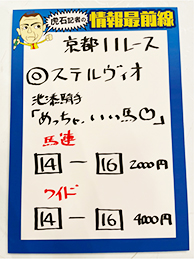 虎石記者の
情報最前線
京都11レース
◎ステルヴィオ
池添騎手
「めっちゃ、いい馬♡」
馬連
14 ー 16 2000円
ワイド
14 ー 16 4000円